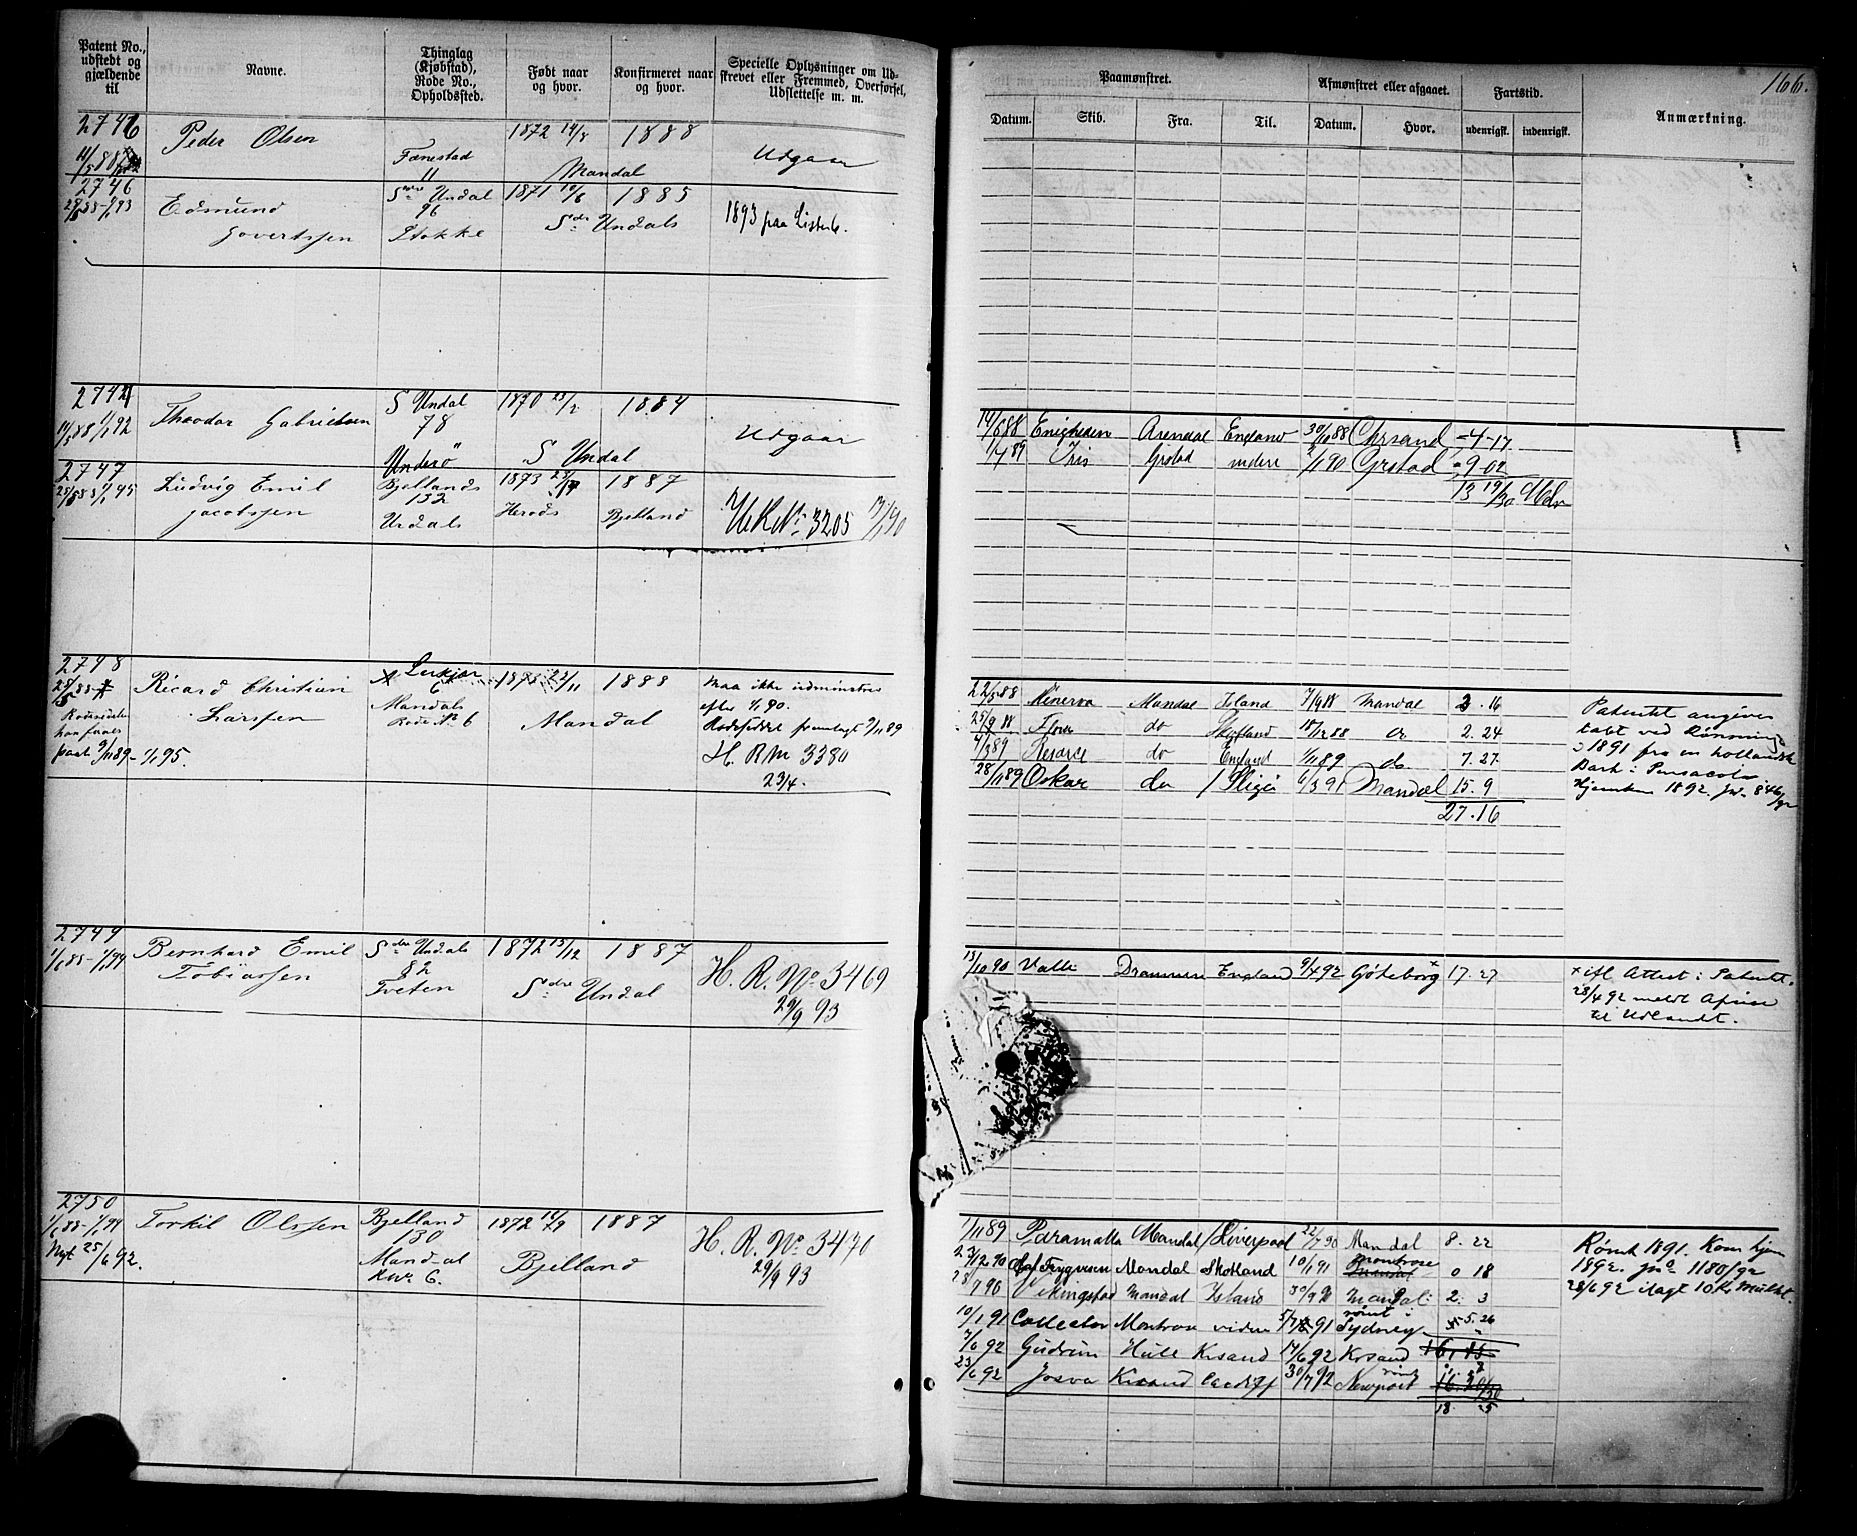 166.
Patent No., udstedt og gjældende til
Navne.
Thinglag (Kjøbstad), Rode No., Opholdssted.
Født naar og hvor.
Konfirmeret naar og hvor.
Specielle Oplysninger om Udskrevet eller Fremmed, Overførsel, Udslettelse m. m.
Paamønstret.
Afmønstret eller afgaaet.
Fartstid.
Anmærkning.
Datum. Skib. Fra. Til. Datum. Hvor. udenrigsk. indenrigsk.
Peder Olsen 1872 14/8 1888
Mandal
Udgaar
2746 Sdre Undal 1871 10/6 1885
Edmund 96
Govertssen Stokke Sdre Undals
1893 paa Listerl.
S Undal 1870 23/2 1884
Theodor Gabrielsen 78
Underö S Undal
Udgaar
14/5 88 Enigheden Arendal England 30/10 88 Chrsand - 4 - 17
Iris Grstad 1/1 90 Grstad - 9 - 02
13 19/30 Mdr
2747 Bjellands 1873 1887
Ludvig Emil 132
Jacobssen Undals Herads Bjelland
No 3205 17/1 90
2748
Ricard Christian Lerkjær 6 1888
Larssen Mandals Rode No 6 Mandal
Maa ikke udmønstres
efter 1/1 90.
Rodeseddel fremlagt 9/11 89
H. R. No 3380
23/4.
22/5 88 Minerva Mandal Island 7/9 88 Mandal 3. 16
25/9 88 Flora do 18/12 88 do 2. 24
4/3 89 do England 1/11 89 do 7. 27
28/11 89 Oskar do 6/3 91 Mandal 15. 9
27. 16
Patentet angives
tabt ved Rømning
i 1891 fra en hollandsk
Bark i Pensacola
Hjemkom 1892. 846/92
2749
1/6 88 - 1/1 94 Bernhard Emil Sdre Undals 1872 13/12 1887
Tobiassen 82
Tveten Sdre Undal
H. R. No. 3469
29/9 93
13/10 90 Valle Drammen England 9/4 92 Göteborg 17. 27
x ifl Attest i Patentet.
28/4 92 meldt Afreise
til Udlandet.
2750
1/6 88 - 1/1 94 Torkil Olssen Bjelland 1872 16/9 1887
Nyt 25/6 92. 130
Mandal
Kvr 6. Bjelland
H. R. No. 3470
29/9 93
1/11 89 Paramatta Mandal / Liverpool 22/7 90 Mandal 8. 22
23/12 90 Mandal Skotland 10/1 91 Montrose 0 18
28/7 90 Vikingstad Mandal Island 30/9 90 Mandal 2. 3
10/1 91 Collector Montrose videre 5/7 91 rømt i Sydney 5. 26
7/6 92 Gudrun Hull Krsand 14/6 92 Krsand
23/6 92 Josva Krsand Cardiff 30/7 92 rømt Newport
18 25
Rømt 1891. Kom hjem
1892. jno 1180/92
28/6 92 ilagt 10 Kr Mulkt.